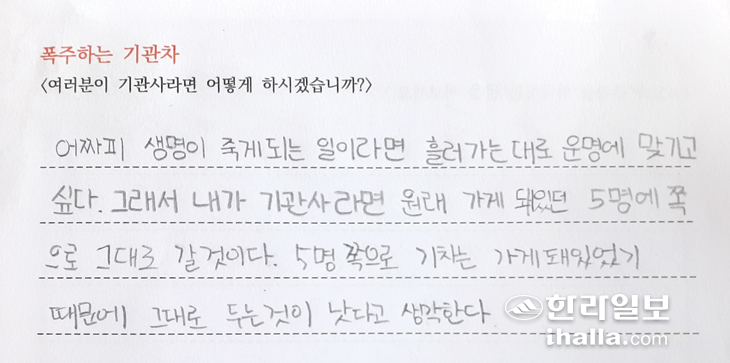 폭주하는 기관차
<여러분이 기관사라면 어떻게 하시겠습니까?>
어짜피 생명이 죽게되는 일이라면 흘러가는대로 운명에 맞기고
싶다. 그래서 내가 기관사라면 원래 가게 돼있던 5명에 쪽
으로 그대로 갈것이다. 5명 쪽으로 기차는 가게돼있었기
때문에 그대로 두는것이 낫다고 생각한다.
한라일보
ihalla.com